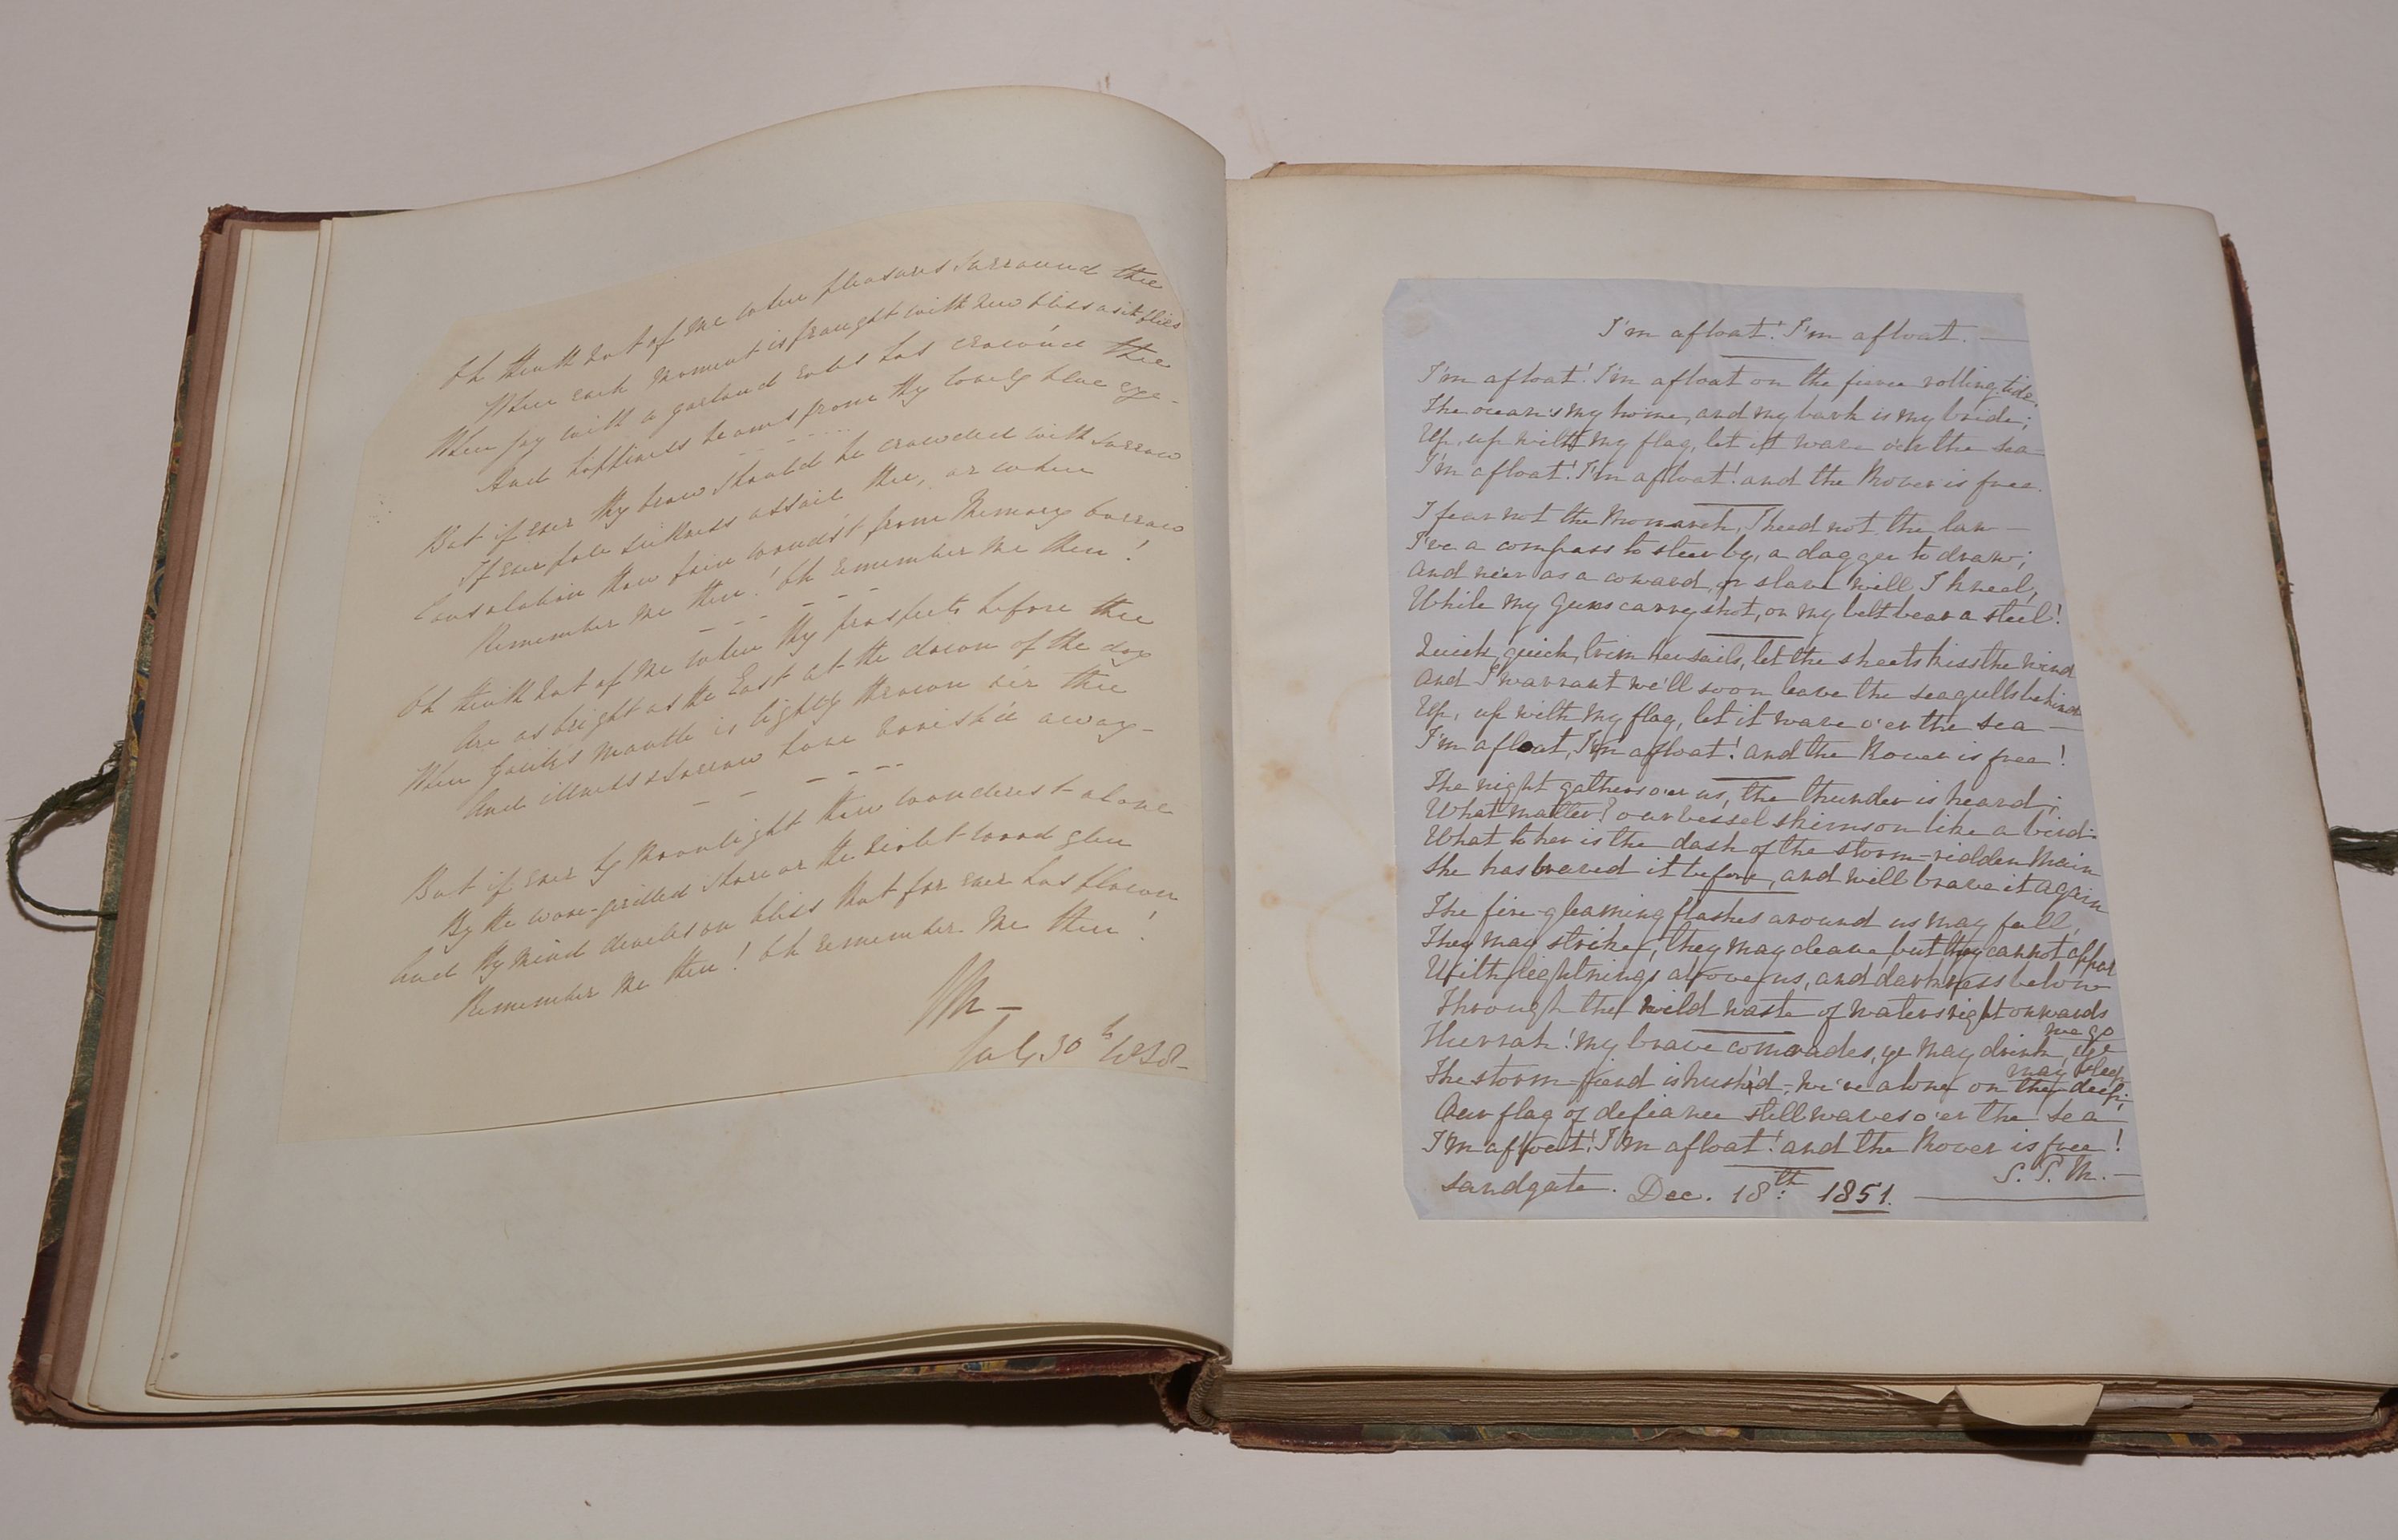 Oh think not of me when pleasures surround thee
When each moment is fraught with new bliss as it flies
When joy with a garland robes has crown'd thee
And happiness beams from thy lovely blue eye -
But if ever thy brow should be crowded with sorrow
If ever pale sickness assail thee, or when
Consolation thou fain wouds't from Memory borrow
Remember me then! Oh remember me then!
Oh think not of me when thy prospects before thee
Are as bright as the East at the dawn of the day
When mantle is lightly thrown o'er thee
And illness & sorrow have vanish'd away -
But if ever by moonlight thou wanderest alone
By the wave-girdled shore or the violet wood glen
And thy mind dwells on bliss that for ever has flown
Remember me then! Oh remember me then!
July 30th
I'm afloat! I'm afloat. —
I'm afloat! I'm afloat on the fierce rolling tide,
The ocean's my home, and my bark is my bride;
Up, up with my flag, let it wave o'er the sea -
I'm afloat! I'm afloat! and the Rover is free.
I fear not the Monarch, I heed not the law —
I've a compass to steer by, a dagger to draw;
And ne'er as a coward, or slave will I kneel,
While my guns carry shot, or my belt bear a steel!
Quick, quick, trim her sails, let the sheets kiss the wind
And I warrant we'll soon leave the seagulls behind
Up, up with my flag, let it wave o'er the sea —
I'm afloat, I'm afloat! and the Rover is free!
The night gathers o'er us, the thunder is heard;
What matter? our vessel skims on like a bird.
What to her is the dash of the storm-ridden Main
She has braved it before, and will brave it again
The fire-gleaming flashes around us may fall,
They may strike, they may cleave but they cannot appal
With lightnings above us, and darkness below
Through the wild waste of waters right onwards
we go
Hurrah! my brave comrades, ye may drink, ye
may sleep
The storm-fiend is hush'd, - we're alone on the deep;
Our flag of defiance still waves o'er the sea
I'm afloat! I'm afloat! and the Rover is free!
S. T. M. —
Sandgate. Dec. 18th: 1851.